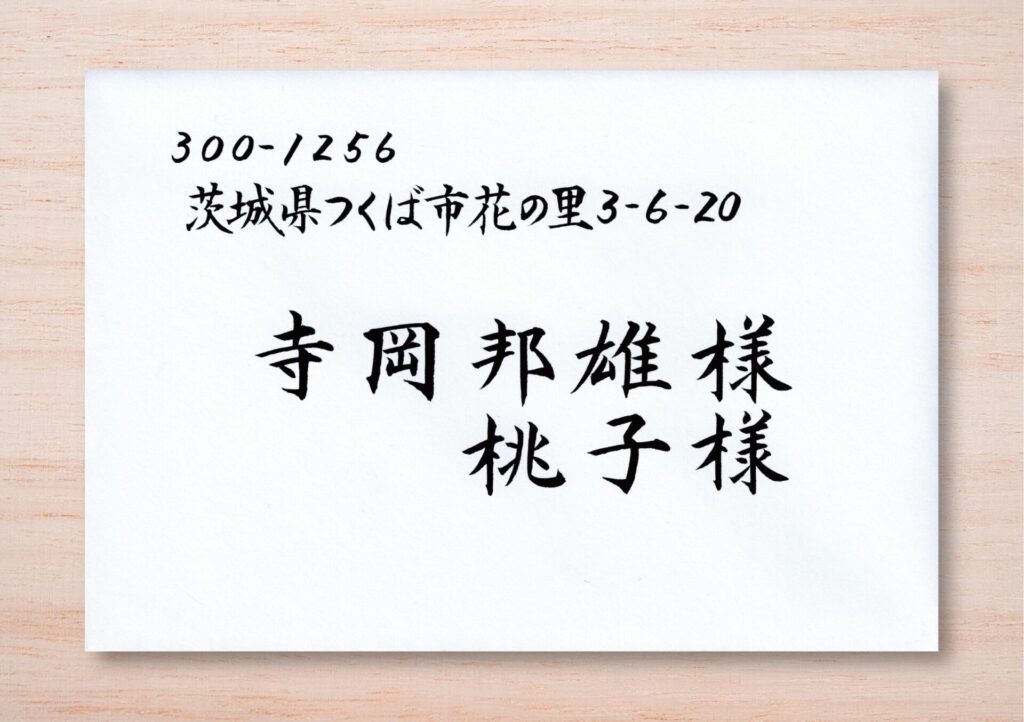 300-1256
茨城県つくば市花の里3-6-20
寺岡邦雄様
桃子様